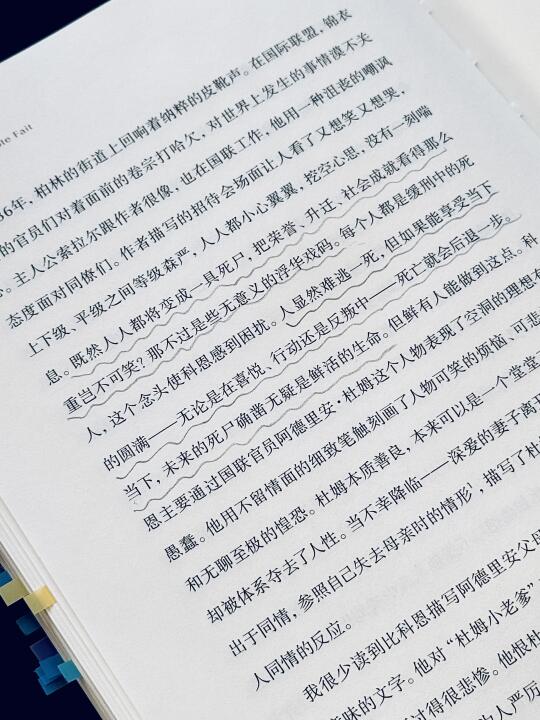 le Fait
36年，柏林的街道上回响着纳粹的皮靴声。在国际联盟，锦衣
的官员们对着面前的卷宗打哈欠，对世界上发生的事情漠不关
。主人公索拉尔跟作者很像，也在国联工作，他用一种沮丧的嘲讽
态度面对同僚们。作者描写的招待会场面让人看了又想笑又想哭，
上下级、平级之间等级森严，人人都小心翼翼，挖空心思，没有一刻喘
息。既然人人都将变成一具死尸，把荣誉、升迁、社会成就看得那么
重岂不可笑？那不过是些无意义的浮华戏码。每个人都是缓刑中的死
人，这个念头使科恩感到困扰。人显然难逃一死，但如果能享受当下
的圆满——无论是在喜悦、行动还是反叛中——死亡就会后退一步。
当下，未来的死尸确凿无疑是鲜活的生命。但鲜有人能做到这点。科
恩主要通过国联官员阿德里安·杜姆这个人物表现了空洞的理想有
愚蠢。他用不留情面的细致笔触刻画了人物可笑的烦恼、可悲
和无聊至极的惶恐。杜姆本质善良，本来可以是一个堂堂
却被体系夺去了人性。当不幸降临——深爱的妻子离开
出于同情，参照自己失去母亲时的情形¹，描写了杜姆
人同情的反应。
我很少读到比科恩描写阿德里安父母
意味的文字。他对“杜姆小老爹”
过得很悲惨。他恨杜
的人严厉